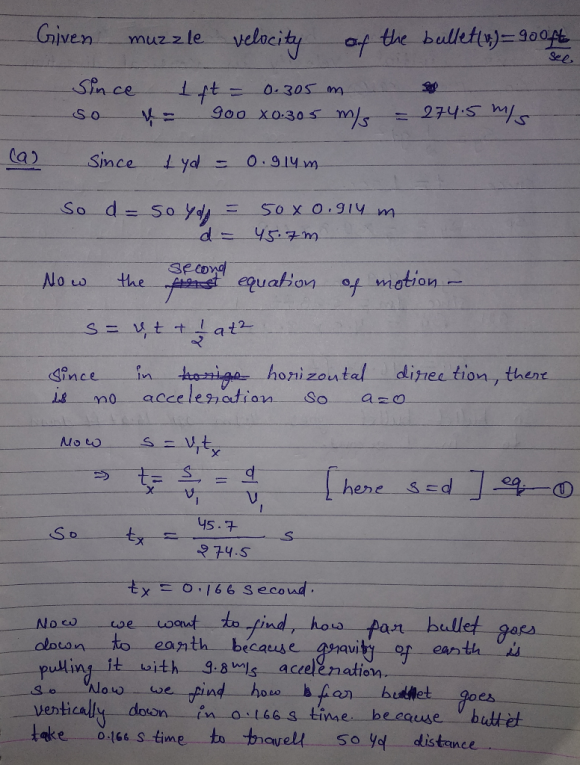 Given muzzle velocity of the bullet(v₁)=900 ft/sec.
Since 1 ft = 0.305 m
so v₁ = 900 x0.305 m/s = 274.5 m/s
(a) Since 1 yd = 0.914m
So d = 50 yd = 50 x 0.914 m
d = 45.7m
Now the second equation of motion -
s = v₁t + 1/2 at²
Since in horizontal direction, there
is no acceleration so a=0
Now s = v₁tx
⇒ tx = s/v₁ = d/v₁ [here s=d] eq. — ①
So tx = 45.7/274.5 s
tx = 0.166 second.
Now we want to find, how far bullet goes
down to earth because gravity of earth is
pulling it with 9.8 m/s acceleration.
so Now we find how far bullet goes
vertically down in 0.166 s time. because bullet
take 0.166 s time to travell 50 yd distance.